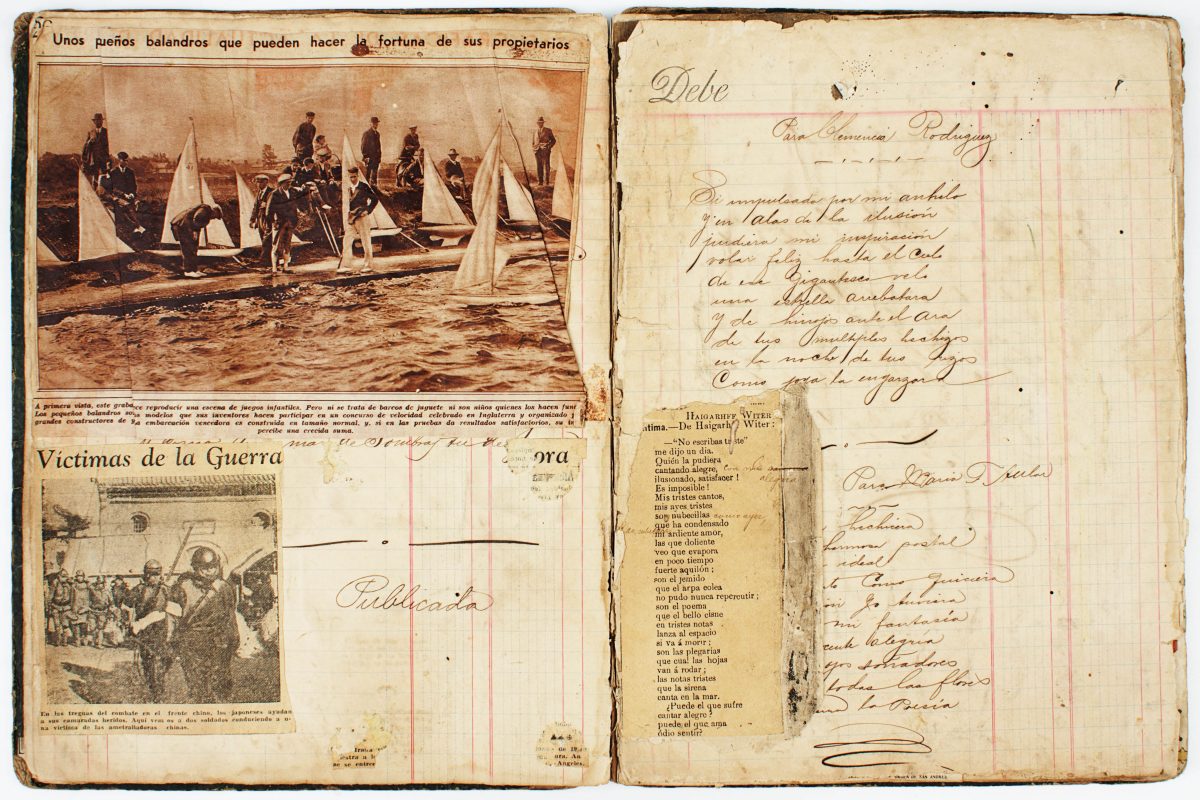 Unos peños balandros que pueden hacer la fortuna de sus propietarios
A primera vista, este graba ce reproducir una escena de juegos infantiles. Pero ni se trata de barcos de juguete ni son niños quienes los hacen funi
Los pequeños balandros so modelos que sus inventores hacen participar en un concurso de velocidad celebrado en Inglaterra y organizado
grandes constructores de embarcación vencedora es construída en tamaño normal, y, si en las pruebas da resultados satisfactorios, su
percibe una crecida suma.
de
Víctimas de la Guerra
ora
Publicada
En las treguas del combate en el frente chino, los japoneses ayudan
a sus camaradas heridos. Aquí vemos a dos soldados conduciendo a u-
na víctima de las ametralladoras chinas.
Angeles.
Debe
Para Clemencia Rodriguez
Si impulsado por mi anhelo
y en alas de la ilusion
pudiera mi inspiración
volar feliz hasta el Cielo
de ese gigantesco velo
una estrella arrebatara
y de hinojos ante el Ara
de tus multiples hechizos
en la noche de tus rizos
Como joya la engarzara
HAIGARHFF WITER
ntima.—De Haigarhff Witer:
—"No escribas triste"
me dijo un dia.
Quién la pudiera
cantando alegre,
ilusionado, satisfacer!
Es imposible!
Mis tristes cantos,
mis ayes tristes
son nubecillas como ayer
que ha condensado
mi ardiente amor,
las que doliente
veo que evapora
en poco tiempo
fuerte aquilón;
son el jemido
que el arpa eolea
no pudo nunca repercutir;
son el poema
que el bello cisne
en tristes notas
lanza al espacio
si va á morir;
son las plegarias
que cual las hojas
van á rodar;
las notas tristes
que la sirena
canta en la mar.
¿Puede el que sufre
cantar alegre?
puede el que ama
ódio sentir?
Para Maria T.
hechicera
hermosa postal
ideal
Como quisiera
Yo tuviera
mi fantasía
alegria
soñadores
todas las flores
la Poesía
SAN ANDRES